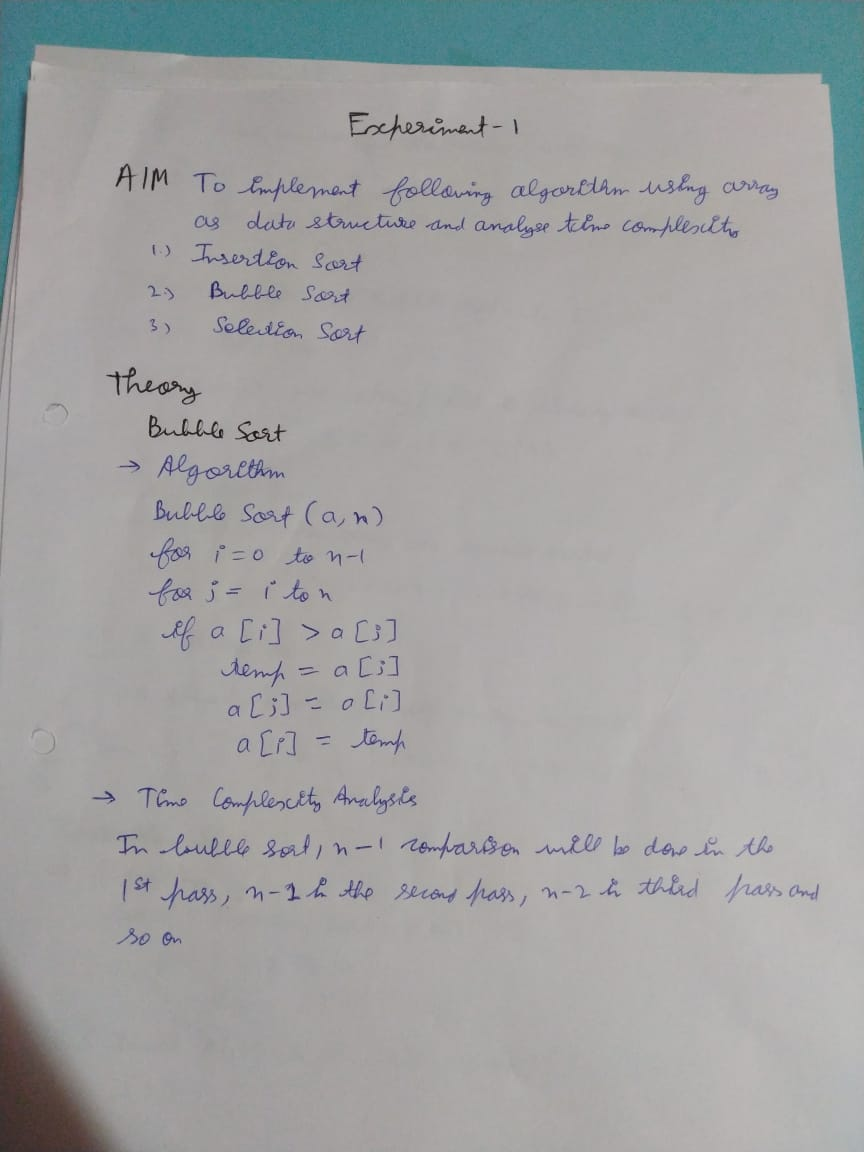 Experiment - 1
AIM To implement following algorithm using array
as data structure and analyse time complexity
1.) Insertion Sort
2.) Bubble Sort
3) Selection Sort
Theory
Bubble Sort
→ Algorithm
Bubble Sort (a, n)
for i = 0 to n-1
for j = i to n
if a [i] > a [j]
temp = a [j]
a [j] = a [i]
a [i] = temp
→ Time Complexity Analysis
In bubble sort, n-1 comparison will be done in the
1st pass, n-1 in the second pass, n-2 in third pass and
so on